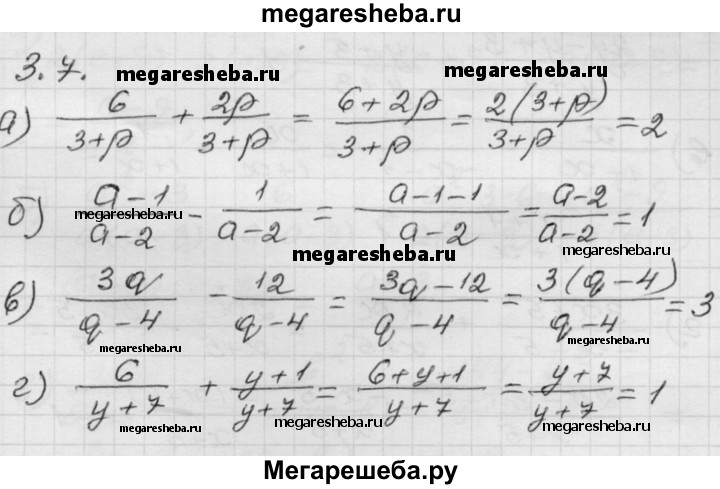 megaresheba.ru
3.7. megaresheba.ru megaresheba.ru
а) 6/(3+p) + 2p/(3+p) = (6+2p)/(3+p) = 2(3+p)/(3+p) = 2
б) (a-1)/(a-2) - 1/(a-2) = (a-1-1)/(a-2) = (a-2)/(a-2) = 1
megaresheba.ru megaresheba.ru megaresheba.ru
в) 3q/(q-4) - 12/(q-4) = (3q-12)/(q-4) = 3(q-4)/(q-4) = 3
megaresheba.ru megaresheba.ru
г) 6/(y+7) + (y+1)/(y+7) = (6+y+1)/(y+7) = (y+7)/(y+7) = 1
megaresheba.ru megaresheba.ru megaresheba.ru
Мегарешеба.ру